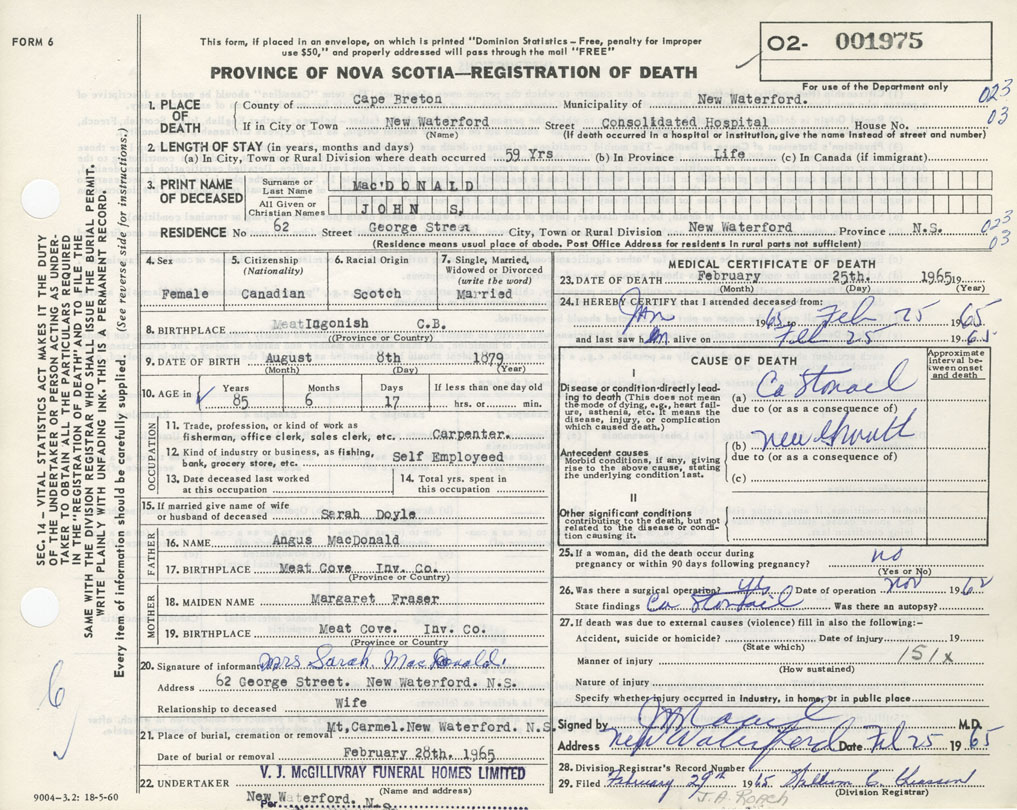 FORM 6
This form, if placed in an envelope, on which is printed "Dominion Statistics – Free, penalty for improper
use $50," and properly addressed will pass through the mail "FREE"
O2- 001975
For use of the Department only
PROVINCE OF NOVA SCOTIA—REGISTRATION OF DEATH
023
03
1. PLACE OF DEATH
County of Cape Breton Municipality of New Waterford.
If in City or Town New Waterford Street Consolidated Hospital House No.
(Name) (If death occurred in a hospital or institution, give the name instead of street and number)
2. LENGTH OF STAY (in years, months and days)
(a) In City, Town or Rural Division where death occurred 59 Yrs (b) In Province Life (c) In Canada (if immigrant)
3. PRINT NAME OF DECEASED
Surname or Last Name Mac'DONALD
All Given or Christian Names JOHN S,
RESIDENCE No 62 Street George Street City, Town or Rural Division New Waterford Province N.S.
023
03
(Residence means usual place of abode. Post Office Address for residents in rural parts not sufficient)
4. Sex Female
5. Citizenship (Nationality) Canadian
6. Racial Origin Scotch
7. Single, Married, Widowed or Divorced (write the word) Married
8. BIRTHPLACE Meat Ingonish C.B.
((Province or Country)
9. DATE OF BIRTH August 8th 1879
(Month) (Day) (Year)
10. AGE in Years 85 Months 6 Days 17 If less than one day old hrs. or min.
OCCUPATION
11. Trade, profession, or kind of work as fisherman, office clerk, sales clerk, etc. Carpenter.
12. Kind of industry or business, as fishing, bank, grocery store, etc. Self Employeed
13. Date deceased last worked at this occupation
14. Total yrs. spent in this occupation
15. If married give name of wife or husband of deceased Sarah Doyle
FATHER
16. NAME Angus MacDonald
17. BIRTHPLACE Meat Cove Inv. Co.
(Province or Country)
MOTHER
18. MAIDEN NAME Margaret Fraser
19. BIRTHPLACE Meat Cove. Inv. Co.
(Province or Country)
20. Signature of informant Mrs Sarah MacDonald.
Address 62 George Street. New Waterford. N.S.
Relationship to deceased Wife
21. Place of burial, cremation or removal Mt,Carmel.New Waterford. N.S.
Date of burial or removal February 28th, 1965
22. UNDERTAKER V. J. McGILLIVRAY FUNERAL HOMES LIMITED
(Name and address)
New Waterford. N.S.
Per.
9004-3.2: 18-5-60
MEDICAL CERTIFICATE OF DEATH
23. DATE OF DEATH February 25th. 1965 19
(Month) (Day) (Year)
24. I HEREBY CERTIFY that I attended deceased from:
Jan 1965 to Feb 25 1965
and last saw him alive on Feb 25 1965
CAUSE OF DEATH
Approximate interval between onset and death
I
Disease or condition directly leading to death (This does not mean the mode of dying, e.g., heart failure, asthenia, etc. It means the disease, injury, or complication which caused death.)
(a) Ca Stomach
due to (or as a consequence of)
Antecedent causes
Morbid conditions, if any, giving rise to the above cause, stating the underlying condition last.
(b) new Growth
due to (or as a consequence of)
(c)
II
Other significant conditions contributing to the death, but not related to the disease or condition causing it.
25. If a woman, did the death occur during pregnancy or within 90 days following pregnancy? no
(Yes or No)
26. Was there a surgical operation? yes Date of operation Nov 1962
State findings Ca Stomach Was there an autopsy?
27. If death was due to external causes (violence) fill in also the following:–
Accident, suicide or homicide? Date of injury 19
(State which)
151x
Manner of injury
(How sustained)
Nature of injury
Specify whether injury occurred in industry, in home, or in public place
Signed by M.D.
Address New Waterford Date Feb 25 1965
28. Division Registrar's Record Number
29. Filed February 29th 1965 William C. Chiasson
(Division Registrar)
J.A. Roach
SEC. 14 – VITAL STATISTICS ACT MAKES IT THE DUTY
OF THE UNDERTAKER OR PERSON ACTING AS UNDER-
TAKER TO OBTAIN ALL THE PARTICULARS REQUIRED
IN THE "REGISTRATION OF DEATH" AND TO FILE THE
SAME WITH THE DIVISION REGISTRAR WHO SHALL ISSUE THE BURIAL PERMIT.
WRITE PLAINLY WITH UNFADING INK. THIS IS A PERMANENT RECORD.
Every item of information should be carefully supplied. (See reverse side for instructions.)
6